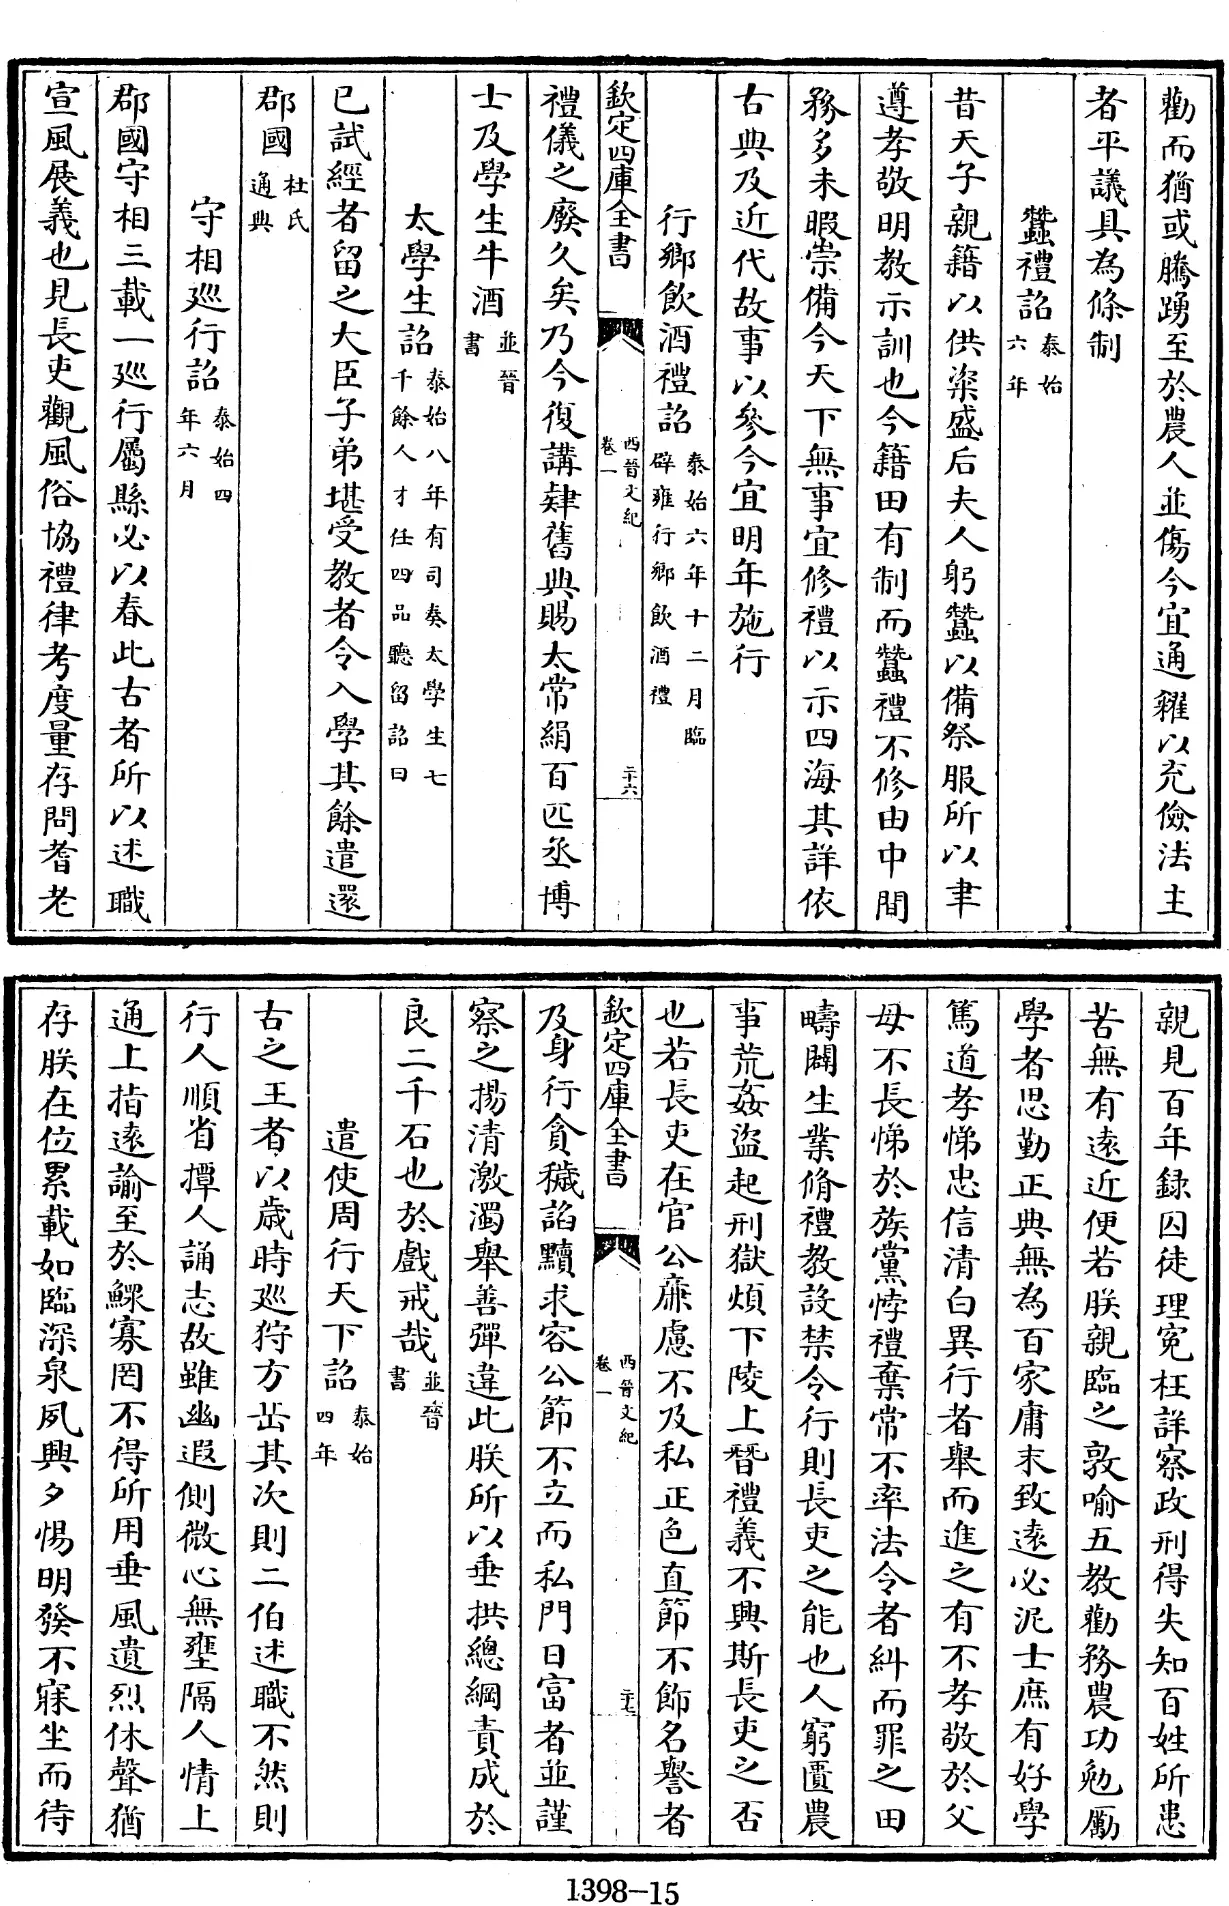 勸而猶或騰踴至於農人並傷今宜通糴以充儉法主
者平議具為條制
蠶禮詔泰始六年
昔天子親籍以供粢盛后夫人躬蠶以備祭服所以聿
遵孝敬明教示訓也今籍田有制而蠶禮不修由中間
務多未暇崇備今天下無事宜修禮以示四海其詳依
古典及近代故事以參今宜明年施行
行鄉飲酒禮詔泰始六年十二月臨辟雍行鄉飲酒禮
欽定四庫全書 西晉文紀卷一 二十六
禮儀之廢久矣乃今復講肄舊典賜太常絹百匹丞博
士及學生牛酒並晉書
太學生詔泰始八年有司奏太學生七千餘人才任四品聽留詔曰
已試經者留之大臣子弟堪受教者令入學其餘遣還
郡國杜氏通典
守相巡行詔泰始四年六月
郡國守相三載一巡行屬縣必以春此古者所以述職
宣風展義也見長吏觀風俗協禮律考度量存問耆老
親見百年録囚徒理冤枉詳察政刑得失知百姓所患
苦無有遠近便若朕親臨之敦喻五教勸務農功勉厲
學者思勤正典無為百家庸末致遠必泥士庶有好學
篤道孝悌忠信清白異行者舉而進之有不孝敬於父
母不長悌於族黨悖禮棄常不率法令者糾而罪之田
疇闢生業脩禮教設禁令行則長吏之能也人窮匱農
事荒姦盜起刑獄煩下陵上替禮義不興斯長吏之否
也若長吏在官公亷慮不及私正色直節不飾名譽者
欽定四庫全書 西晉文紀卷一 二十七
及身行貪穢諂黷求容公節不立而私門日富者並謹
察之揚清激濁舉善彈違此朕所以垂拱總綱責成於
良二千石也於戲戒哉並晉書
遣使周行天下詔泰始四年
古之王者以歳時巡狩方岳其次則二伯述職不然則
行人順省撢人誦志故雖幽遐側微心無壅隔人情上
通上指遠諭至於鰥寡罔不得所用垂風遺烈休聲猶
存朕在位累載如臨深泉夙興夕惕明發不寐坐而待
1398-15